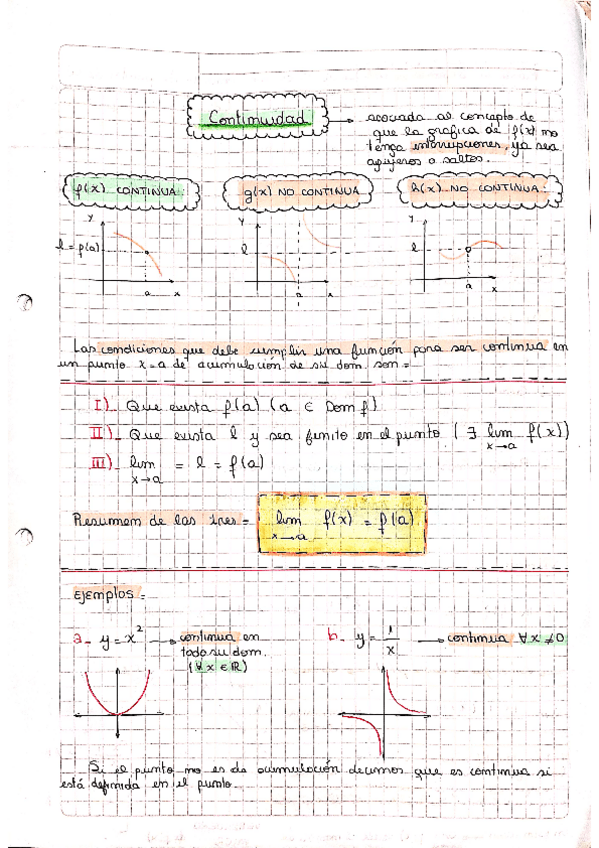 Continuidad
asociada al concepto de
que la grafica de f(x) no
tenga interrupciones, ya sea
agujeros o saltos.
f(x) CONTINUA:
g(x) NO CONTINUA
h(x) NO CONTINUA:
y
l = f(a)
a
x
y
l
a
x
y
l
a
x
Las condiciones que debe cumplir una función para ser continua en
un punto x=a de acumulación de su dom son=
I)_ Que exista f(a) (a ∈ Dom f)
II)_ Que exista l y sea finito en el punto (∃ lim f(x))
x→a
III)_ lim = l = f(a)
x→a
Resumen de las tres= lim f(x) = f(a)
x→a
Ejemplos:
a_ y = x² → continua en
todo su dom.
(∀ x ∈ ℝ)
b_ y = 1/x → continua ∀x ≠ 0
Si el punto no es de acumulación decimos que es continua si
está definida en el punto.